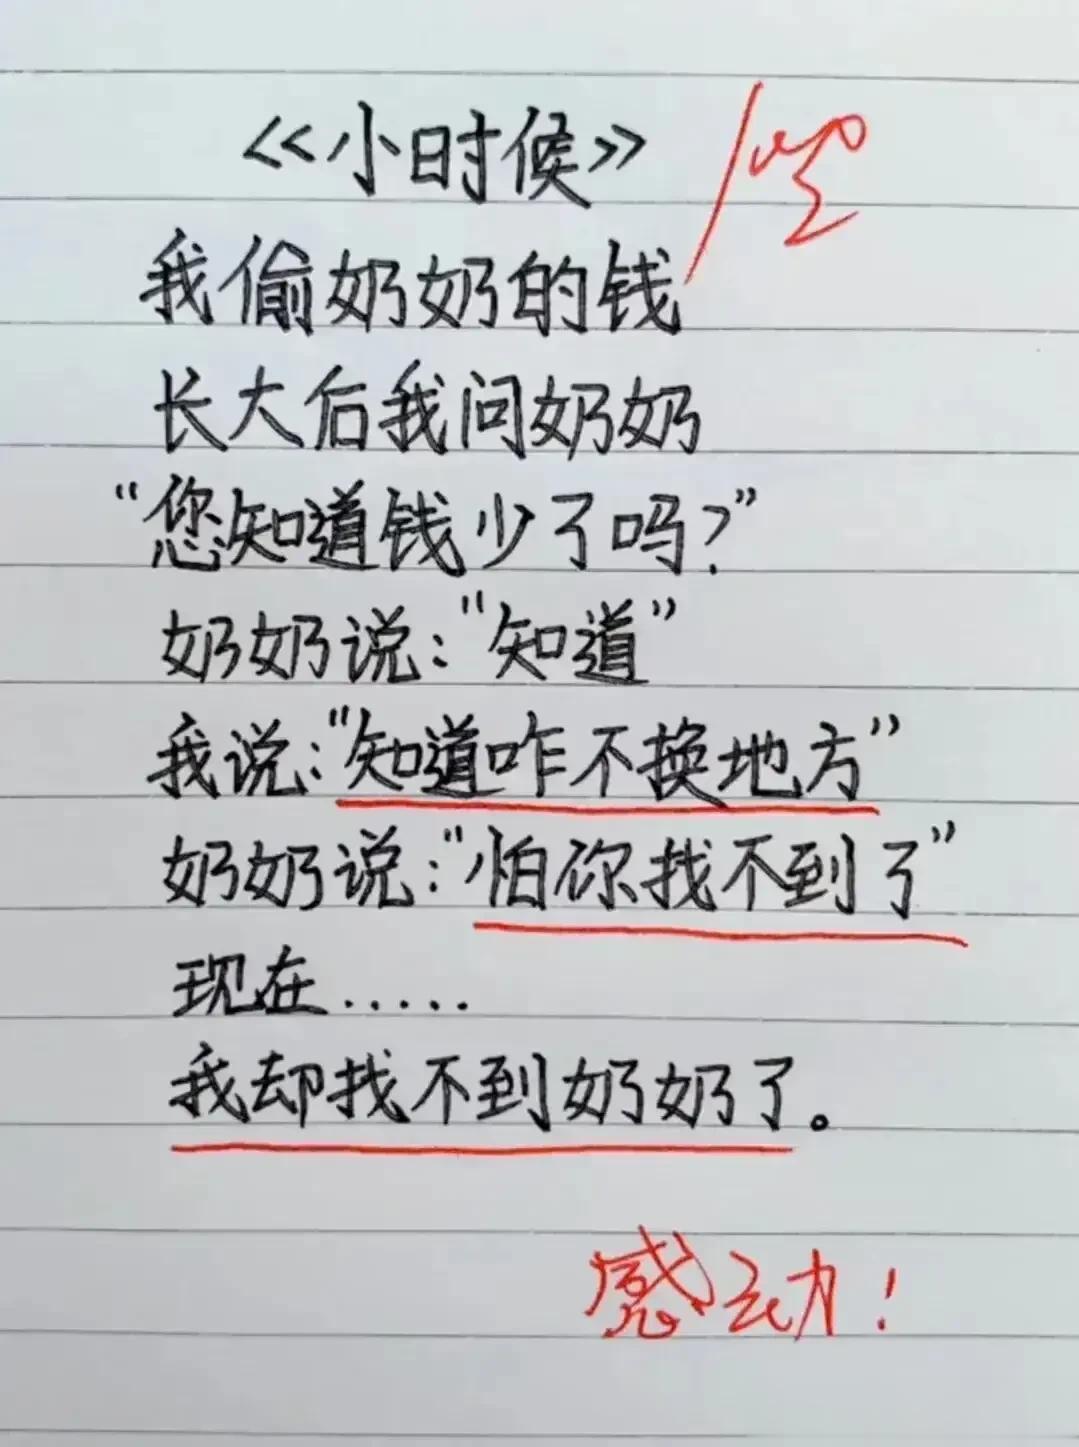 《小时候》
我偷奶奶的钱
长大后我问奶奶
“您知道钱少了吗?”
奶奶说:“知道”
我说:“知道咋不换地方”
奶奶说:“怕你找不到了”
现在.....
我却找不到奶奶了。
感动!